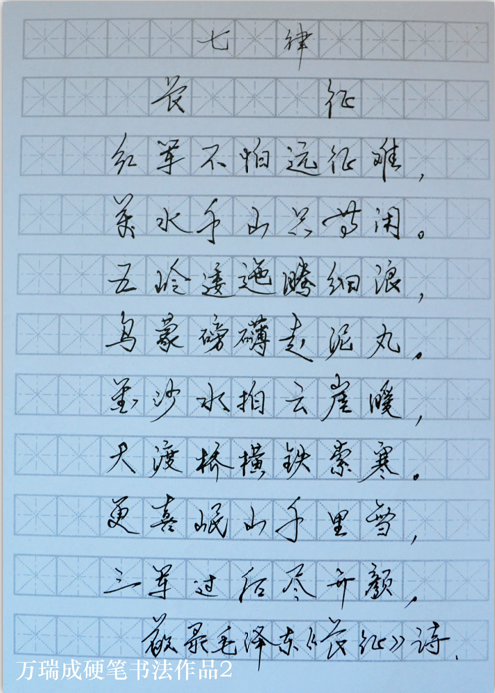 七律
长征
红军不怕远征难，
萬水千山只等闲。
五岭逶迤腾细浪，
乌蒙磅礴走泥丸。
金沙水拍云崖暖，
大渡桥横铁索寒。
更喜岷山千里雪，
三军过后尽开颜，
敬录毛泽东《长征》诗.
万瑞成硬笔书法作品2